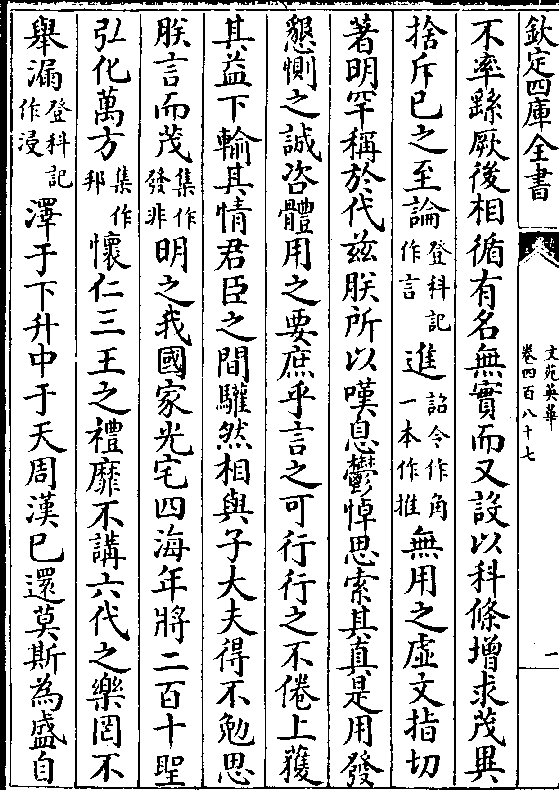 欽定四庫全書
文苑英華
卷四百八十七
一
不率繇厥後相循有名無實而又設以科條增求茂異
捨斥已之至論登科記作言進詔令作角一本作推無用之虛文指切
著明罕稱於代兹朕所以嘆息鬱悼思索其真是用發
懇惻之誠咨體用之要庶乎言之可行行之不倦上獲
其益下輸其情君臣之間驩然相與子大夫得不勉思
朕言而茂集作發非明之我國家光宅四海年將二百十聖
弘化萬方集作邦懷仁三王之禮靡不講六代之樂罔不
舉漏登科記作浸澤于下升中于天周漢已還莫斯為盛自